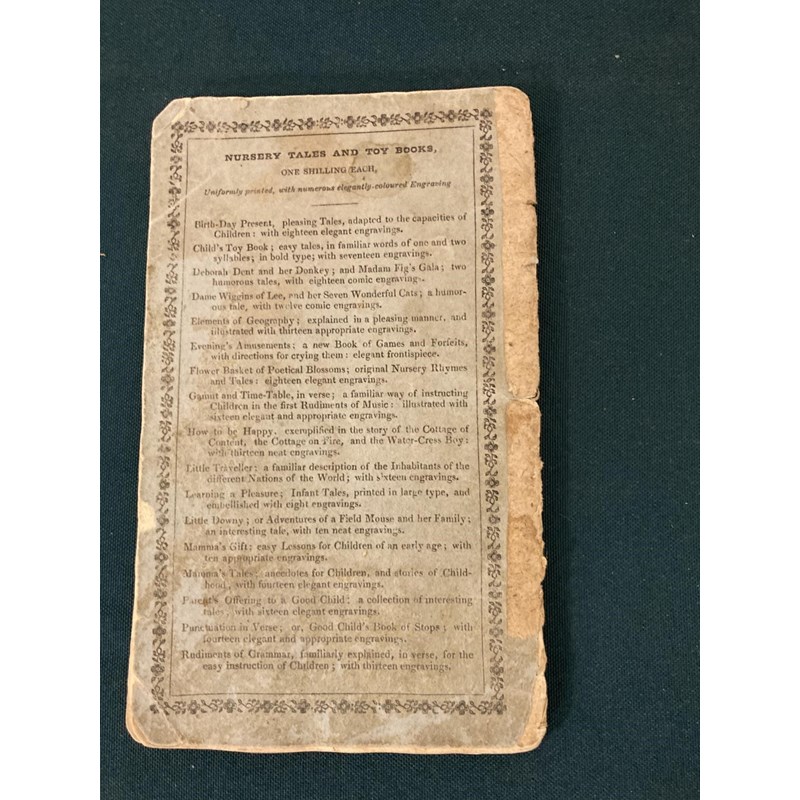 NURSERY TALES AND TOY BOOKS,
ONE SHILLING EACH,
Uniformly printed, with numerous elegantly-coloured Engraving
Birth-Day Present, pleasing Tales, adapted to the capacities of
Children: with eighteen elegant engravings.
Child's Toy Book; easy tales, in familiar words of one and two
syllables; in bold type; with seventeen engravings.
Deborah Dent and her Donkey; and Madam Fig's Gala; two
humorous tales, with eighteen comic engravings.
Dame Wiggins of Lee, and her Seven Wonderful Cats; a humor-
ous tale, with twelve comic engravings.
Elements of Geography; explained in a pleasing manner, and
illustrated with thirteen appropriate engravings.
Evening's Amusements; a new Book of Games and Forfeits,
with directions for crying them: elegant frontispiece.
Flower Basket of Poetical Blossoms; original Nursery Rhymes
and Tales: eighteen elegant engravings.
Gamut and Time-Table, in verse; a familiar way of instructing
Children in the first Rudiments of Music: illustrated with
sixteen elegant and appropriate engravings.
How to be Happy, exemplified in the story of the Cottage of
Content, the Cottage on Fire, and the Water-Cress Boy:
with thirteen neat engravings.
Little Traveller: a familiar description of the Inhabitants of the
different Nations of the World; with sixteen engravings.
Learning a Pleasure; Infant Tales, printed in large type, and
embellished with eight engravings.
Little Downy; or Adventures of a Field Mouse and her Family;
an interesting tale, with ten neat engravings.
Mamma's Gift: easy Lessons for Children of an early age; with
ten appropriate engravings.
Mamma's Tales; anecdotes for Children, and stories of Child-
hood, with fourteen elegant engravings.
Parent's Offering to a Good Child; a collection of interesting
tales, with sixteen elegant engravings.
Punctuation in Verse; or, Good Child's Book of Stops; with
fourteen elegant and appropriate engravings.
Rudiments of Grammar, familiarly explained, in verse, for the
easy instruction of Children; with thirteen engravings.